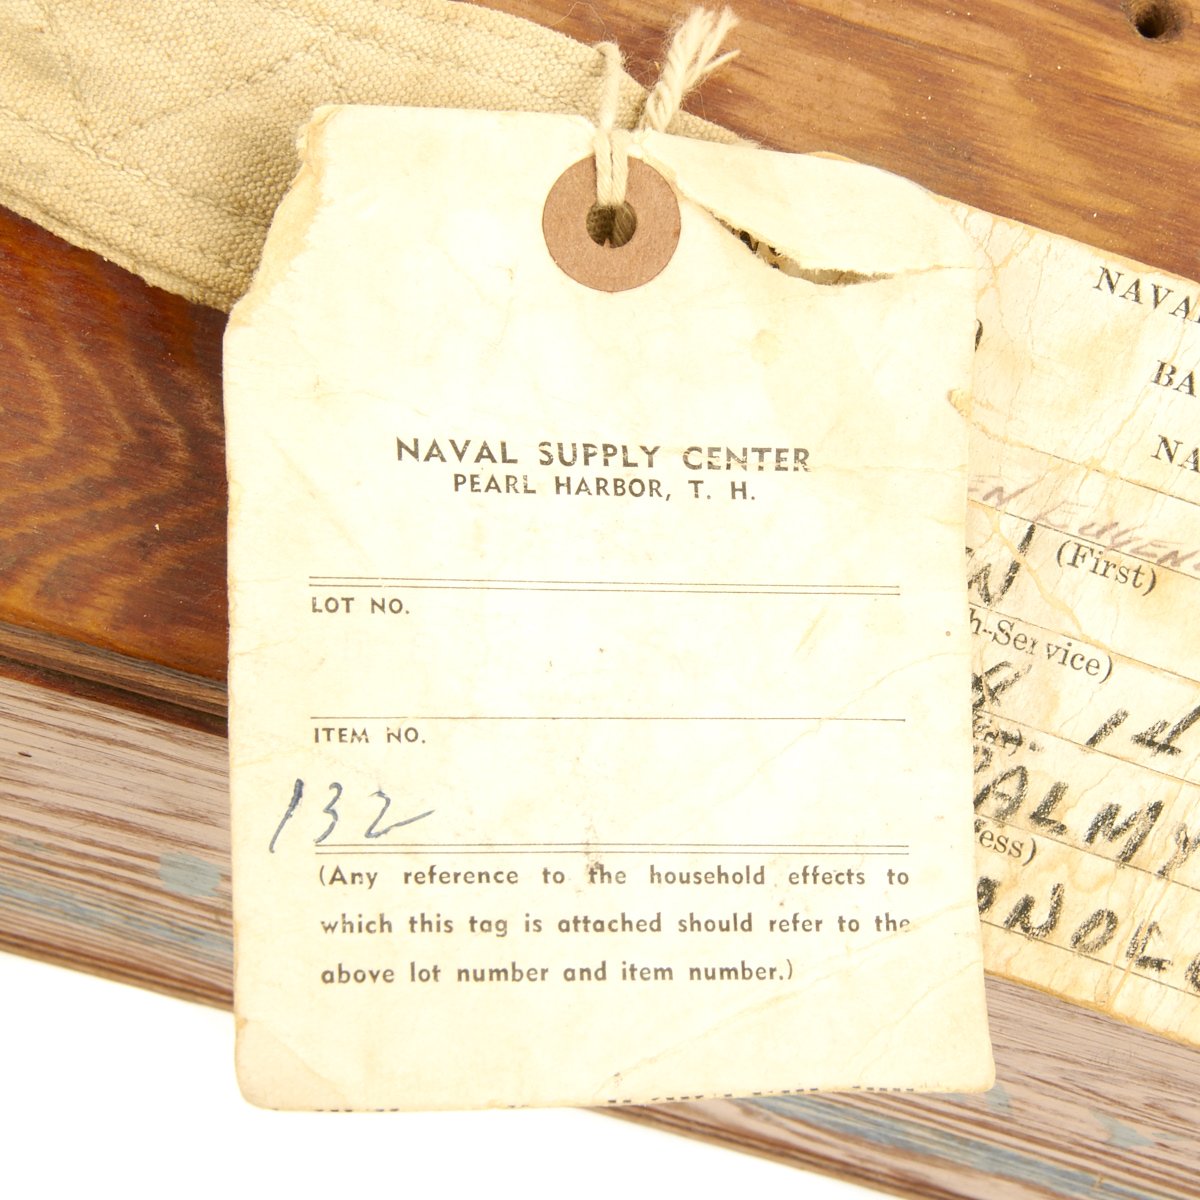 NAVAL SUPPLY CENTER
PEARL HARBOR, T. H.
LOT NO.
ITEM NO.
132
(Any reference to the household effects to
which this tag is attached should refer to the
above lot number and item number.)
NAVAL
BA
NA
(First)
h-Service)
14
ess)